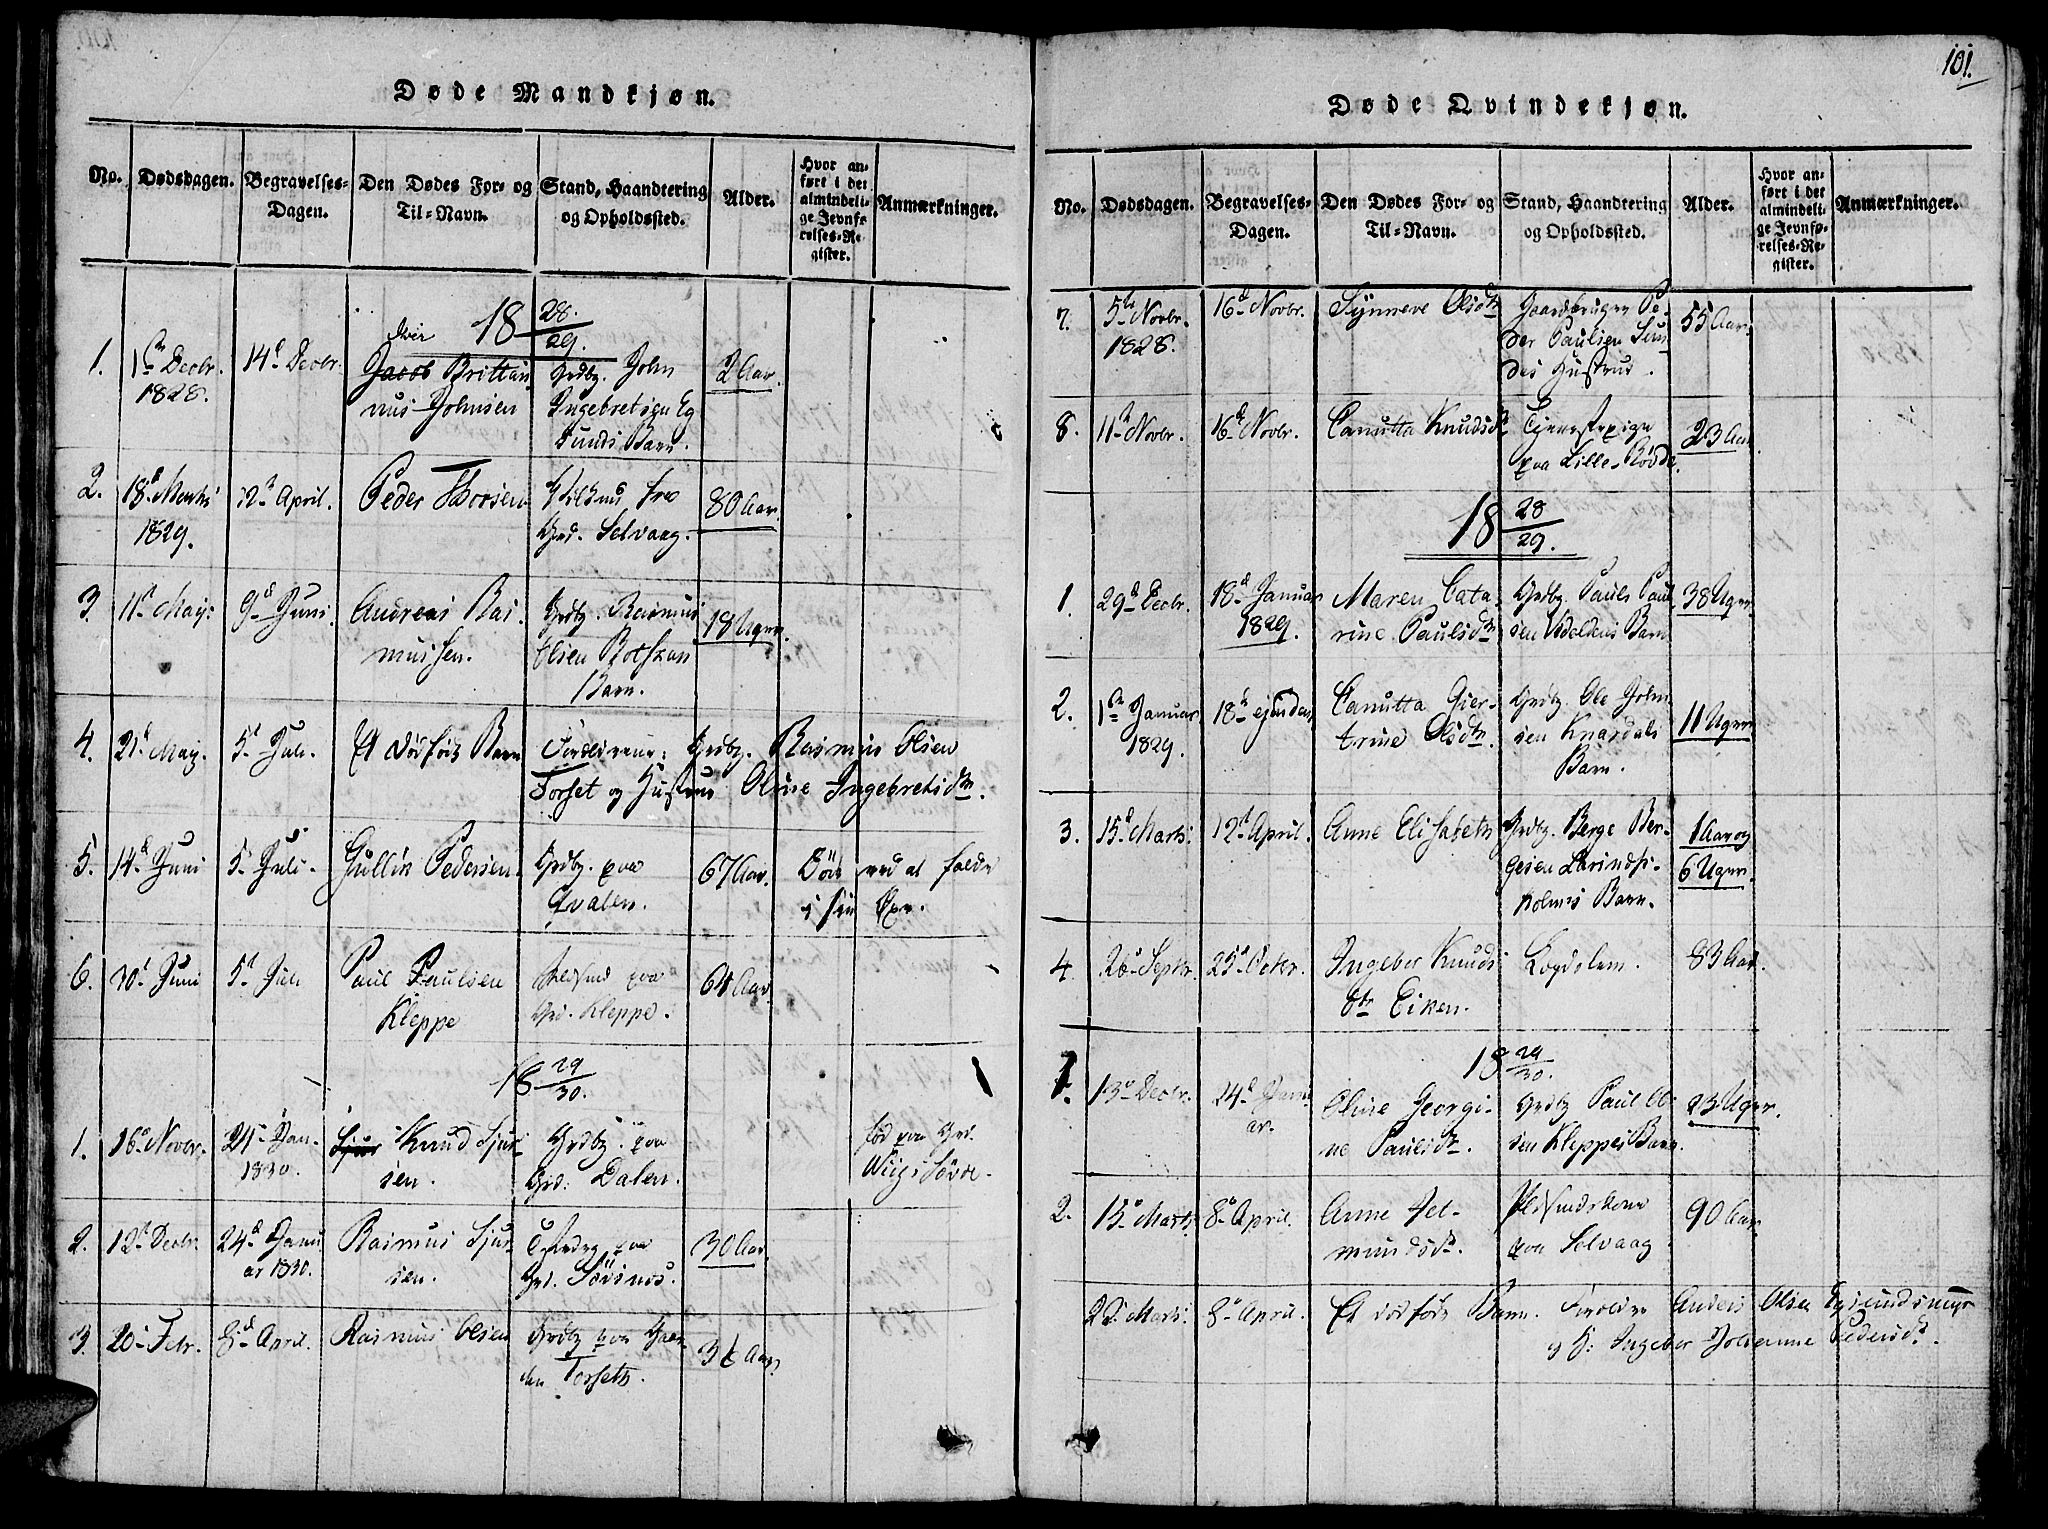 Døde Mandkjøn.
No.
Dødsdagen.
Begravelses-
Dagen.
Den Dødes For- og
Til-Navn.
Stand, Haandtering
og Opholdssted.
Alder.
Hvor an-
ført i det
almindeli-
ge Jevnfø-
relses-Re-
gister.
Anmærkninger.
18 28/29.
1.
1ste Decbr.
1828.
14d Decbr.
Jacob Brittan
nus Johnsen
Grdbg. John
Ingebretsen Eg
sunds Barn.
2 Aar.
2.
18d Marts
1829.
12t April.
Peder Thorsen
Grd. Selvaag.
80 Aar.
3.
11t May.
9d Juni
Andreas Ras
mussen.
Grdbg. Rasmus
Olsen
Barn.
18 Uger.
4.
21t May.
5t Juli.
Et dødfødt Barn
Forældrene: Grdbg. Rasmus Olsen
Forset og Hustrue Oline Ingebretsdtr.
5.
14d Juni
5t Juli.
Gullik Pedersen.
Grdbg. paa
Qvalen.
67 Aar.
Døde ved at falde
i sin Øxe.
6.
30t Juni
5t Juli
Paul Paulsen
Kleppe
paa
Grd. Kleppe.
64 Aar.
18 29/30.
1.
16d Novbr.
21d Jan.
1830.
Sjur Knud Sjur
sen.
Grdbg. paa
Grd: Dalen.
fød paa Grd.
Wiig i Søvde.
2.
12t Decbr.
24d Janu
ar 1830.
Rasmus Sjur
sen.
paa
Grd. Søvsnes.
30 Aar.
3.
20d Febr.
8d April.
Rasmus Olsen
Grdbg paa Gaar
den Forseth.
36 Aar.
101.
Døde Qvindekjøn.
No.
Dødsdagen.
Begravelses-
Dagen.
Den Dødes For- og
Til-Navn.
Stand, Haandtering
og Opholdssted.
Alder.
Hvor an-
ført i det
almindeli-
ge Jevnfø-
relses-Re-
gister.
Anmærkninger.
7.
5t Novbr.
1828.
16d Novbr.
Synneve Olsdtr
Gaardbruger Pe-
der Paulsen
des Hustrue.
55 Aar.
8.
11t Novbr.
16d Novbr.
Canutta Knudsdtr
Tjenestepige
paa Lille-Røvde.
23 Aar
18 28/29.
1.
29d Decbr.
18d Januar
1829.
Maren Cata-
rine Paulsdtr
Grdbg. Pauls Paul
sen Barn
38 Uger.
2.
1ste Januar
1829.
18d ejusdem
Canutta Gier-
trine Olsdtr.
Grdbg. Ole John
sen Knardals
Barn.
11 Uger.
3.
15d Marts.
12t April.
Anne Elisabeth
Grdbg. Berge Ber-
gesen
holms Barn.
1 Aar og
6 Uger.
4.
26d Septbr.
25d Octbr.
Ingebor Knuds
dtr Eiken.
Lægdslem.
83 Aar.
18 29/30.
1.
13d Decbr.
24d Janu
ar.
Oline Georgi-
ne Paulsdtr.
Grdbg Paul Ol
sen Kleppes Barn.
23 Uger.
2.
15d Marts.
8d April.
Anne Jet-
mundsdtr.
paa Selvaag.
90 Aar.
22d Marts.
8d April.
Et dødfødt Barn. Forældre Anders Olsen
og H: Ingebor Johanne Pedersdtr.